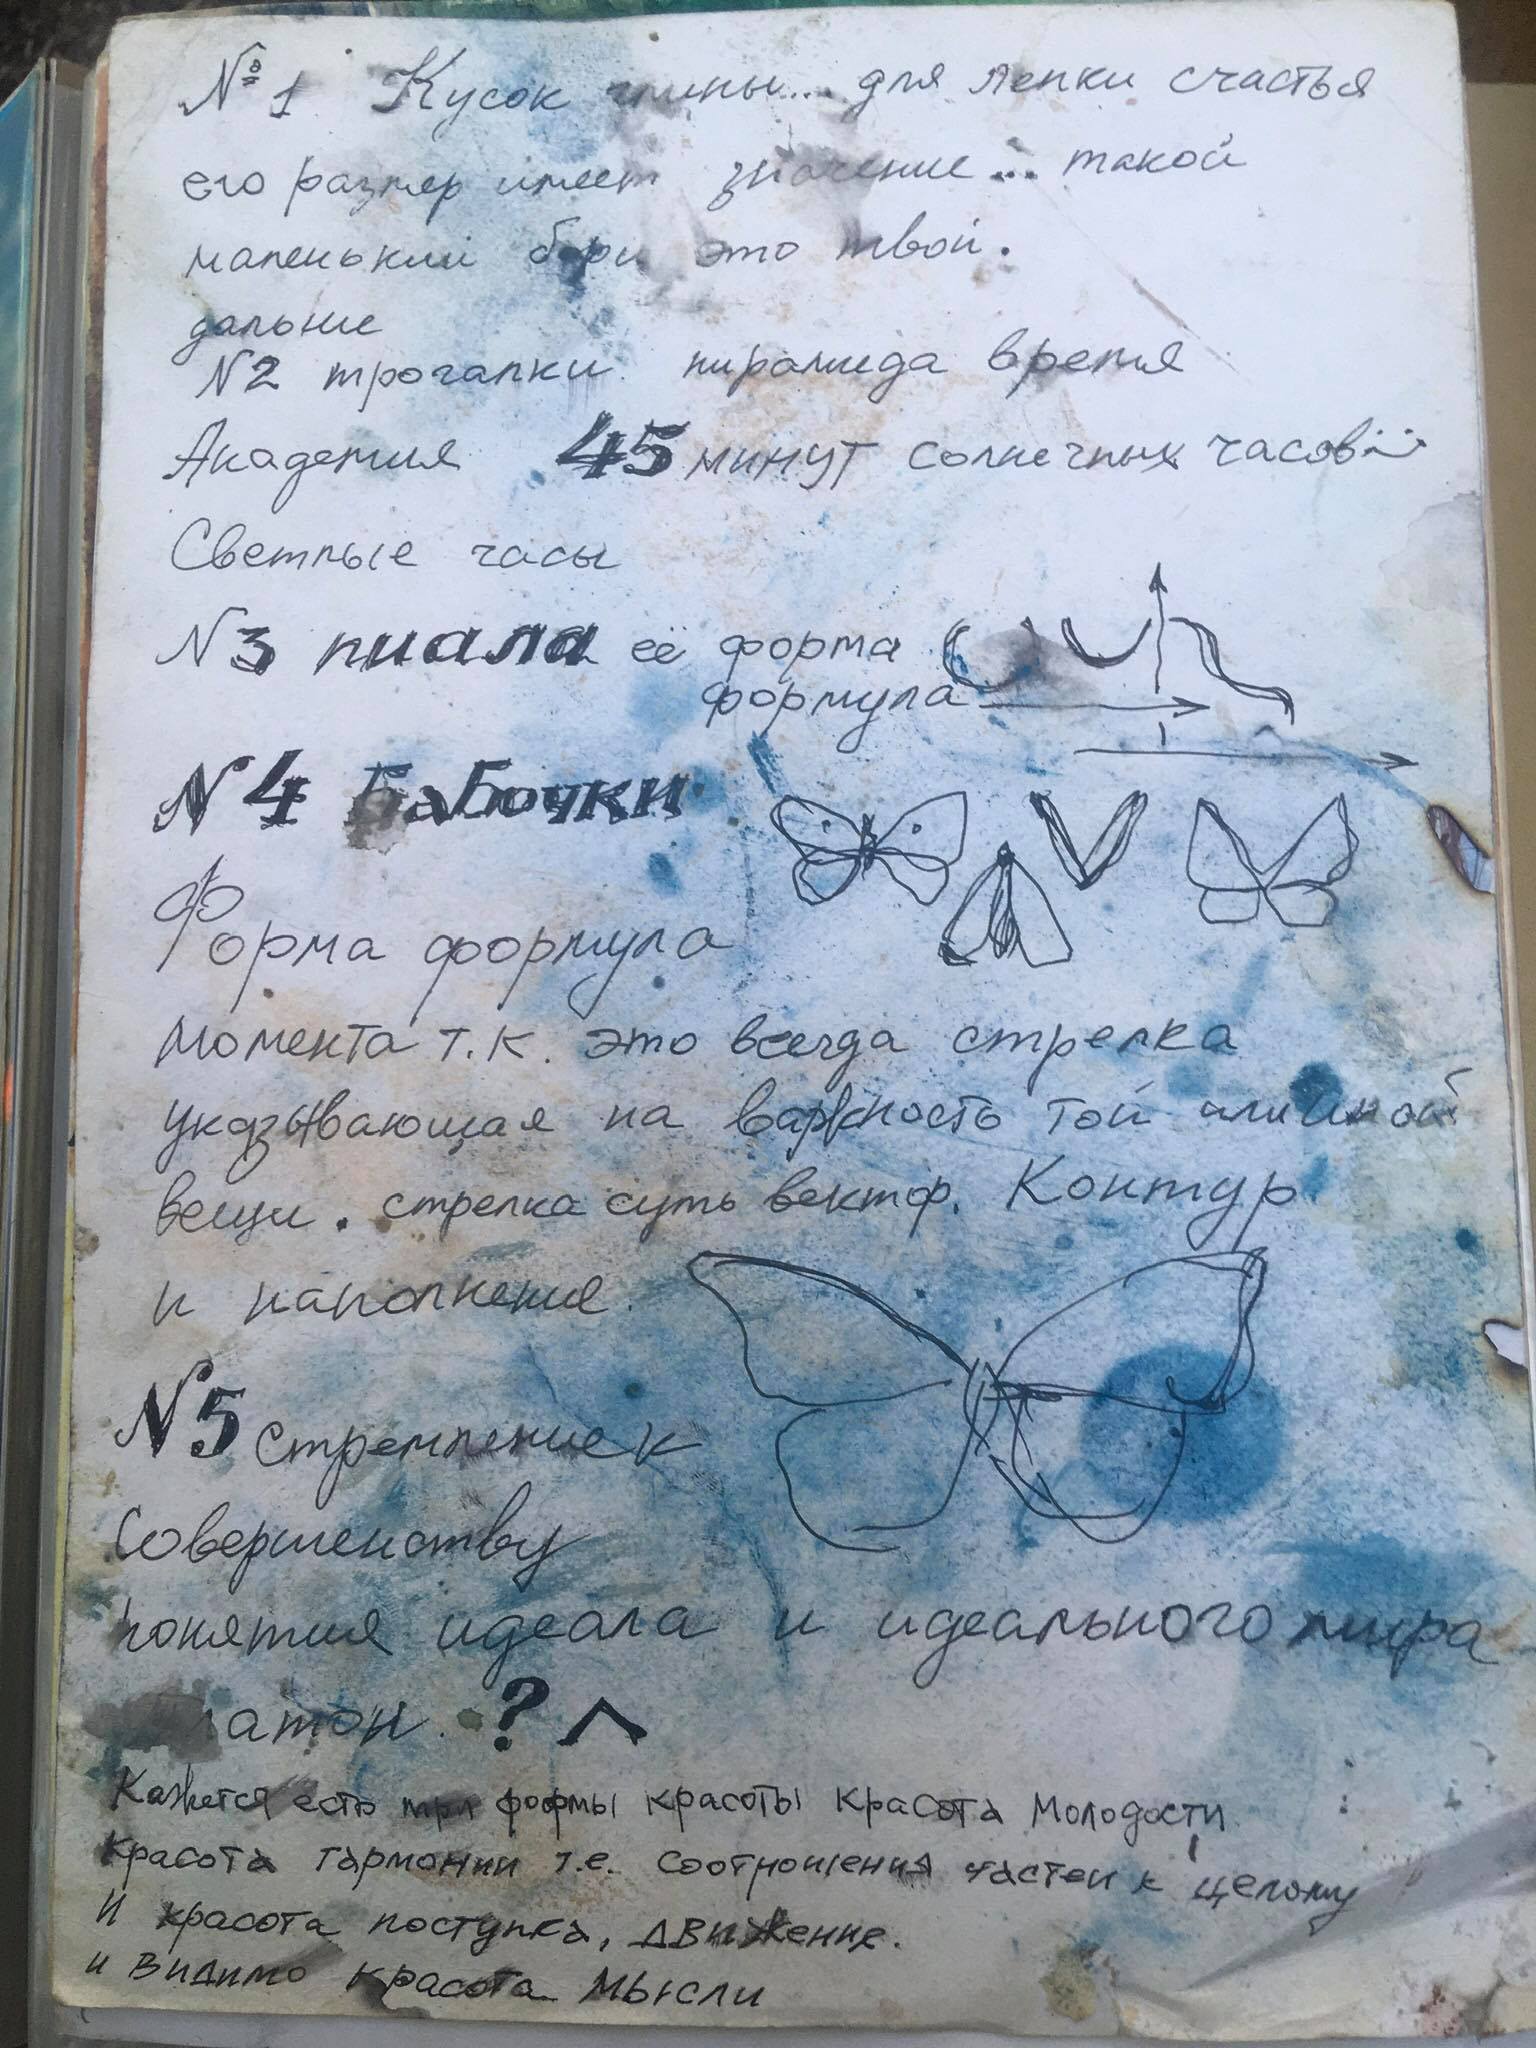 №1 Кусок глины... для лепки счастья
его размер имеет значение... такой
маленький бери это твой.
дальше
N2 трогалки пирамида время
Академия 45 минут солнечных часов
Светлые часы
N3 пиала её форма
формула
N4 Бабочки
Форма формула
момента т.к. это всегда стрелка
указывающая на важность той или иной
вещи. стрелка суть вектор. Контур
и наполнение.
N5 Стремление к
Совершенству
понятия идеала и идеального мира
Платон. ?
Кажется есть три формы красоты красота молодости
красота гармонии т.е. соотношения частей к целому
И красота поступка, движение.
и видимо красота мысли